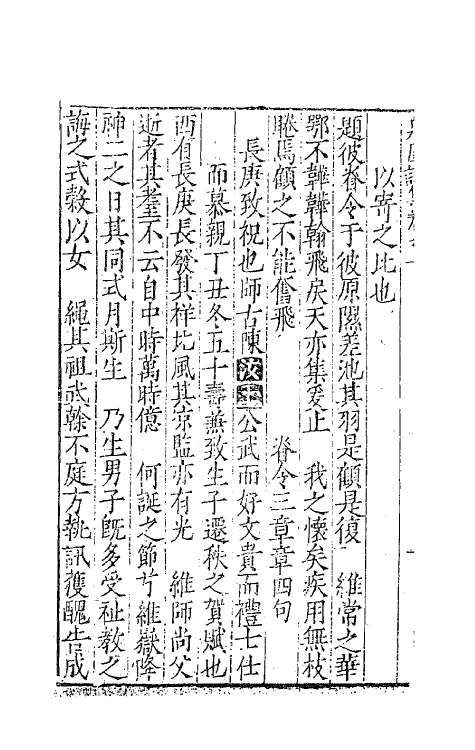 以寄之比也
題彼脊令于彼原隰差池其羽是顧是復　維常之華
鄂不韡韡翰飛戾天亦集爰止　我之懷矣疾用無枝
睠焉顧之不能奮飛　脊令三章章四句
長庚致祝也師古陳公武而好文貴而禮士仕
而慕親丁丑冬五十壽兼致生子遷秩之賀賦也
西有長庚長發其祥北風其涼監亦有光　維師尚父
逝者其耋不云自中時萬時億　何誕之節兮維嶽降
神二之日其同式月斯生　乃生男子旣多受祉教之
誨之式穀以女　繩其祖武榦不庭方執訊獲醜告成